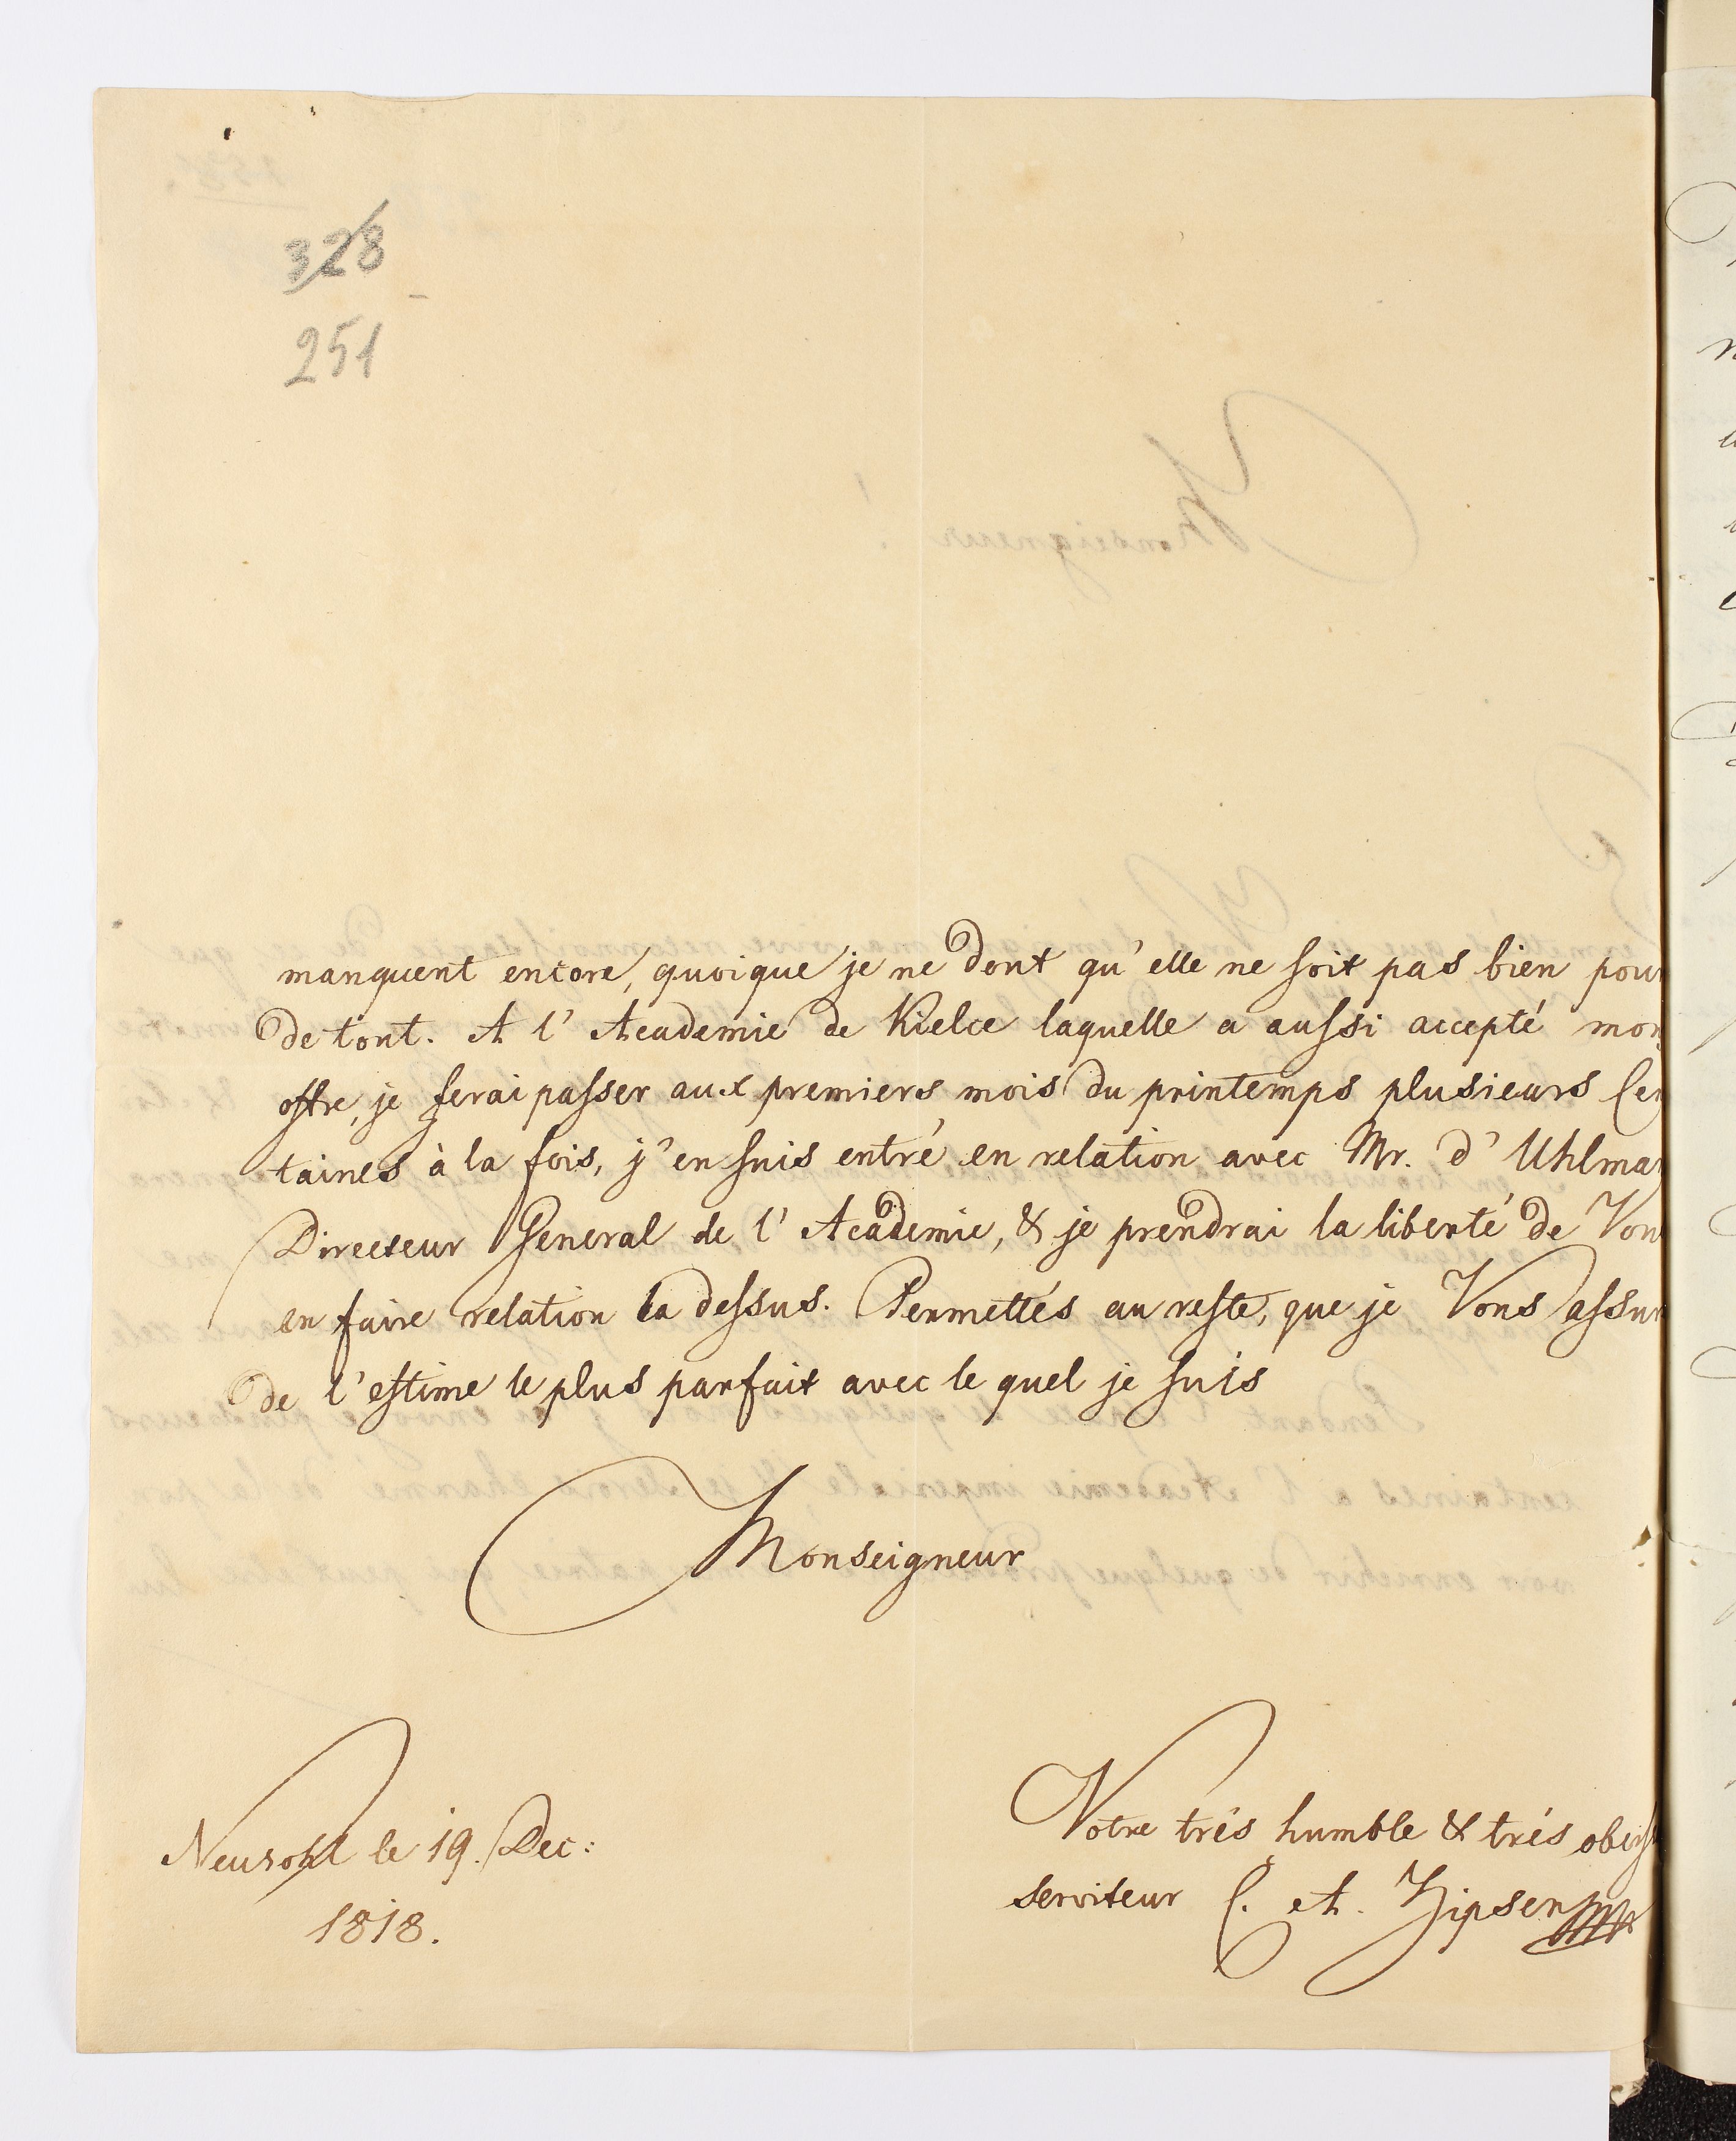 328
251
manquent encore, quoique je ne dout qu'elle ne soit pas bien pour
de tout. A l'Academie de Kielce laquelle a aussi accepté mon
offre, je ferai passer aux premiers mois du printemps plusieurs Cen
taines à la fois, j'en suis entré en relation avec Mr. d'Uhlman
Directeur General de l'Academie, & je prendrai la liberté de Vou
en faire relation la dessus. Permettés au reste, que je Vous assur
de l'estime le plus parfait avec le quel je suis
Monseigneur
Votre trés humble & trés obeiss
serviteur C. A. Zipser
Neusohl le 19. Dec:
1818.